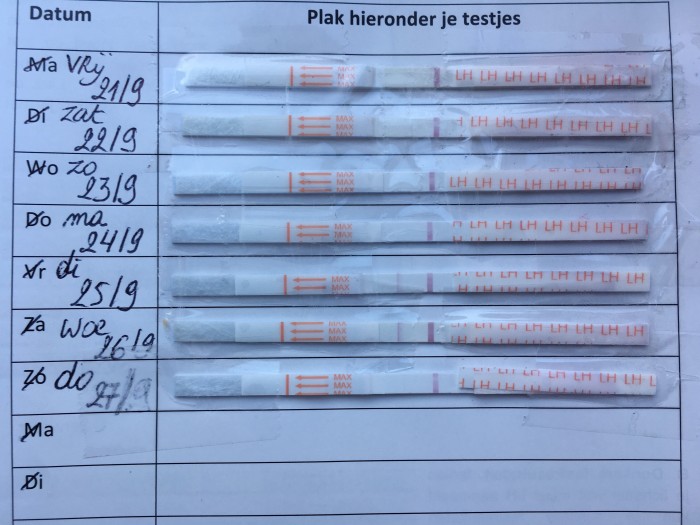 Datum Plak hieronder je testjes
Ma Vrij
21/9
MAX
MAX
LH LH LH LH LH LH LH LH
Di zat
22/9
MAX
MAX
MAX
LH LH LH LH LH LH LH
Wo zo
23/9
MAX
MAX
MAX
LH LH LH LH LH LH LH
Do ma
24/9
MAX
MAX
LH LH LH LH LH LH LH LH
Vr di
25/9
MAX
MAX
MAX
LH LH LH LH LH LH LH
Za woe
26/9
MAX
MAX
LH LH LH LH LH LH LH
Zo do
27/9
MAX
MAX
MAX
LH LH LH LH LH LH LH
Ma
Di